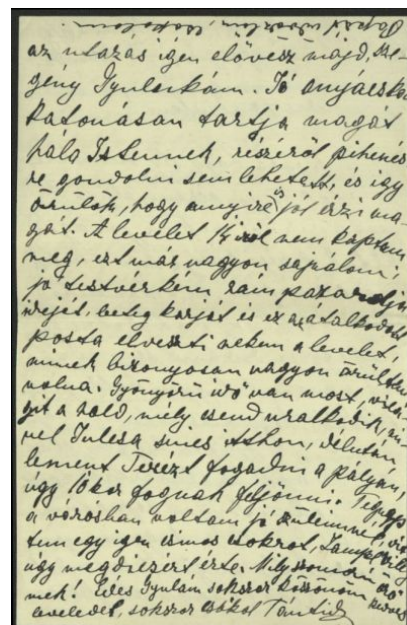 az utazás igen elővesz majd, sze-
gény Gyuluskám. Jó anyácska
katonásan tartja magát
hála Istennek, részéről pihenés
re gondolni sem lehetett, és így
örülök, hogy annyira is jól érzi ma-
gát. A levelet 14 ről nem kaptam
meg, ezt már nagyon sajnálom,
jó testvérkém rám pazarolja
idejét, beteg karját és ez az átalkodott
posta elveszti nekem a levelet,
minek bizonyosan nagyon örültem
volna. Gyönyörű idő van most, vilá-
gít a hold, mély csend uralkodik, mi-
vel Julcsa sincs itthon, délután
lement Terézt fogadni a pályán,
úgy 10kor fognak feljönni. Tegnap
a városban voltam jó szüleimmel, vet-
tem egy igen csinos csokrot,
úgy megdicsért érte. Mily szomorú
nek! Édes Gyulám sokszor köszönöm kedves
leveledet, sokszor csókol